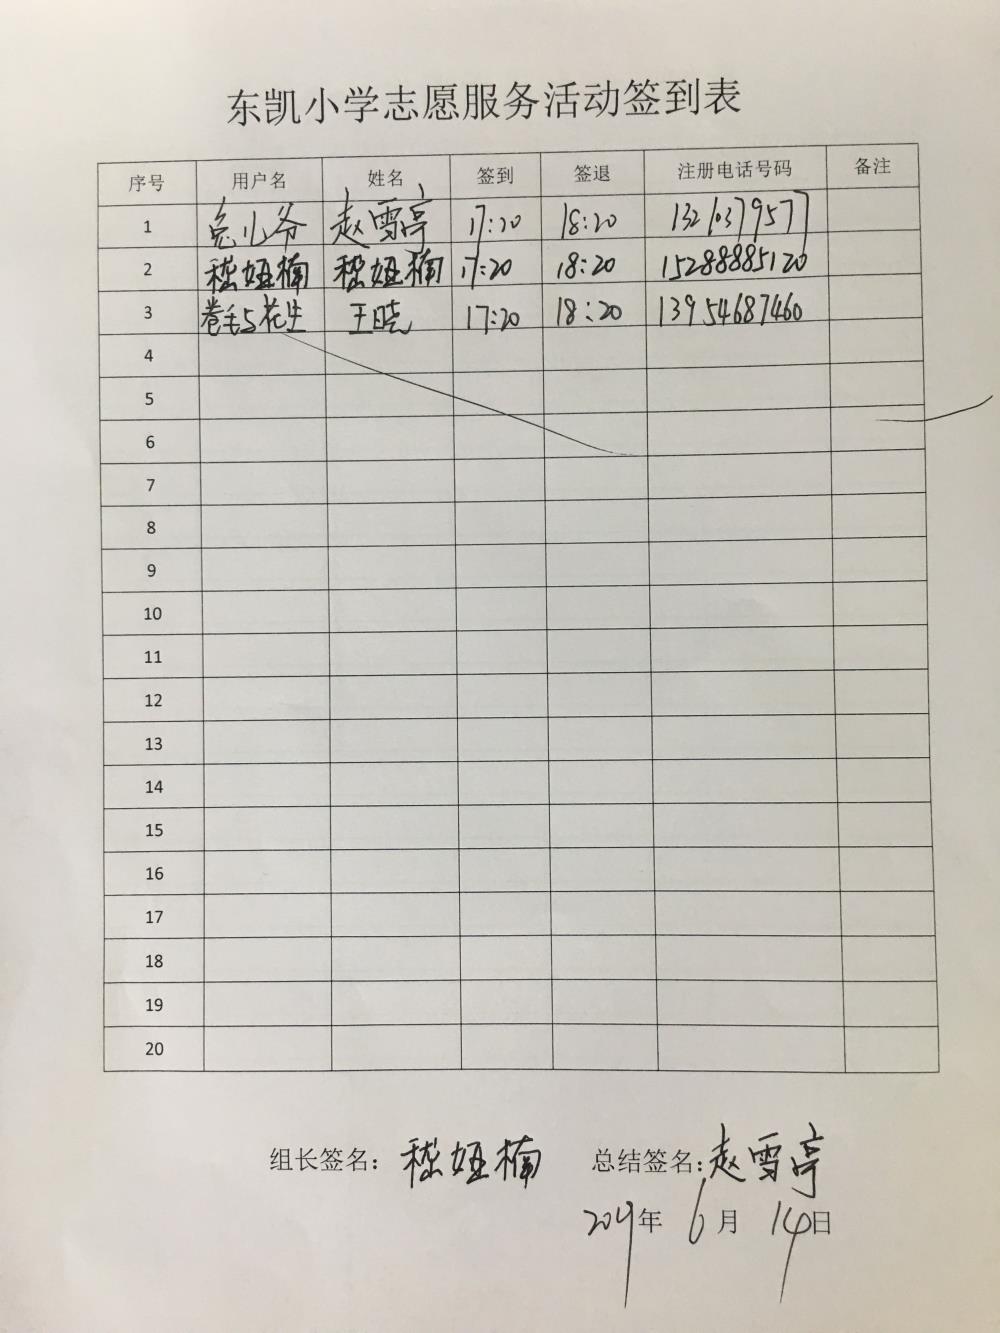 东凯小学志愿服务活动签到表
序号 用户名 姓名 签到 签退 注册电话号码 备注
1 兔儿爷 赵雪亭 17:20 18:20 13210379577
2 嵇娅楠 嵇娅楠 17:20 18:20 15288885120
3 卷毛与花生 王晓 17:20 18:20 13954687460
4
5
6
7
8
9
10
11
12
13
14
15
16
17
18
19
20
组长签名：嵇娅楠 总结签名：赵雪亭
2019年 6月 14日